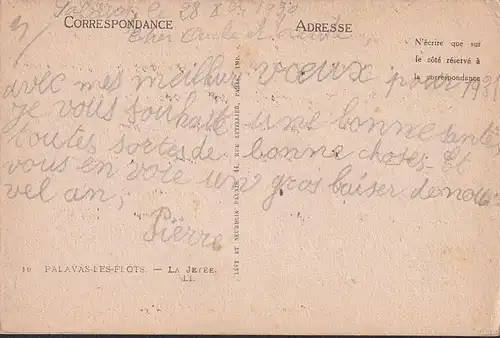 le 28 X 1930
CORRESPONDANCE
ADRESSE
Cher Oncle et
N'écrire que sur
le côté réservé à
la correspondance
avec mes meilleurs vœux pour 1931
je vous souhaite une bonne sante
toutes sortes de bonne choses. Et
vous en voie un gros baiser de nou
vel an,
Pierre
LÉVY ET NEURDEIN RÉUNIS, 44, RUE LETELLIER, PARIS
19 PALAVAS-LES-FLOTS. — LA JETÉE.
LL.